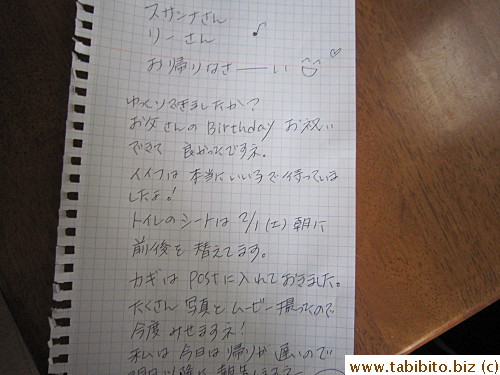 スサンナさん
リーさん ♪
お帰りなさーい ♡
ゆっくりできましたか?
お父さんの Birthday お祝い
できて 良かったですネ。
は 本当にいい子で待っていま
したよ!
トイレのシートは 2/1(土) 朝に
前後を 替えてます。
カギは POSTに入れておきました。
たくさん 写真とムービー 撮ったので
今度 みせますネ!
私は 今日は帰りが 遅いので
www.tabibito.biz